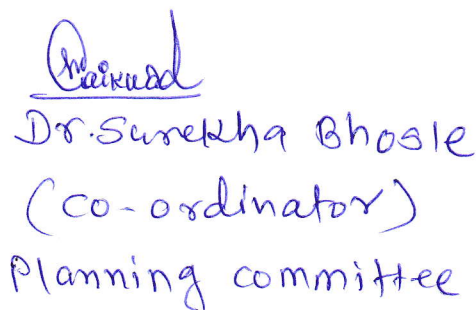 Gaikwad
Dr. Surekha Bhosle
(co-ordinator)
Planning committee